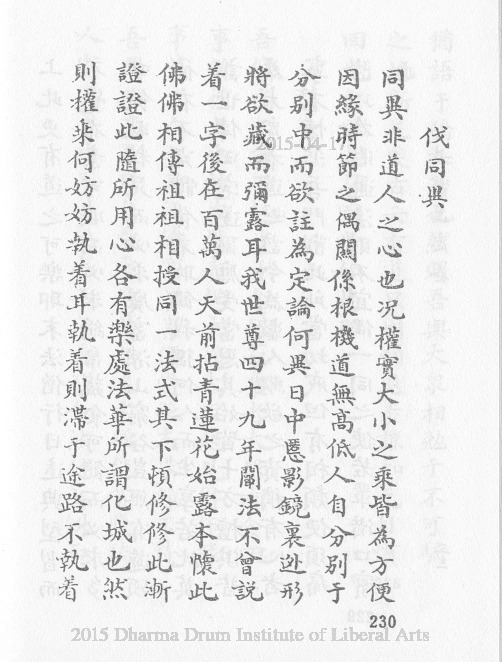 伐同異
同異非道人之心也況權實大小之乘皆為方便
因緣時節之偶關係根機道無高低人自分別于
分別中而欲註為定論何異日中慝影鏡裏逃形
將欲藏而彌露耳我世尊四十九年闡法不曾說
着一字後在百萬人天前拈青蓮花始露本懷此
佛佛相傳祖祖相授同一法式其下頓修修此漸
證證此隨所用心各有樂處法華所謂化城也然
則權乘何妨妨執着耳執着則滯于途路不執着
230
2015-04-17
2015 Dharma Drum Institute of Liberal Arts